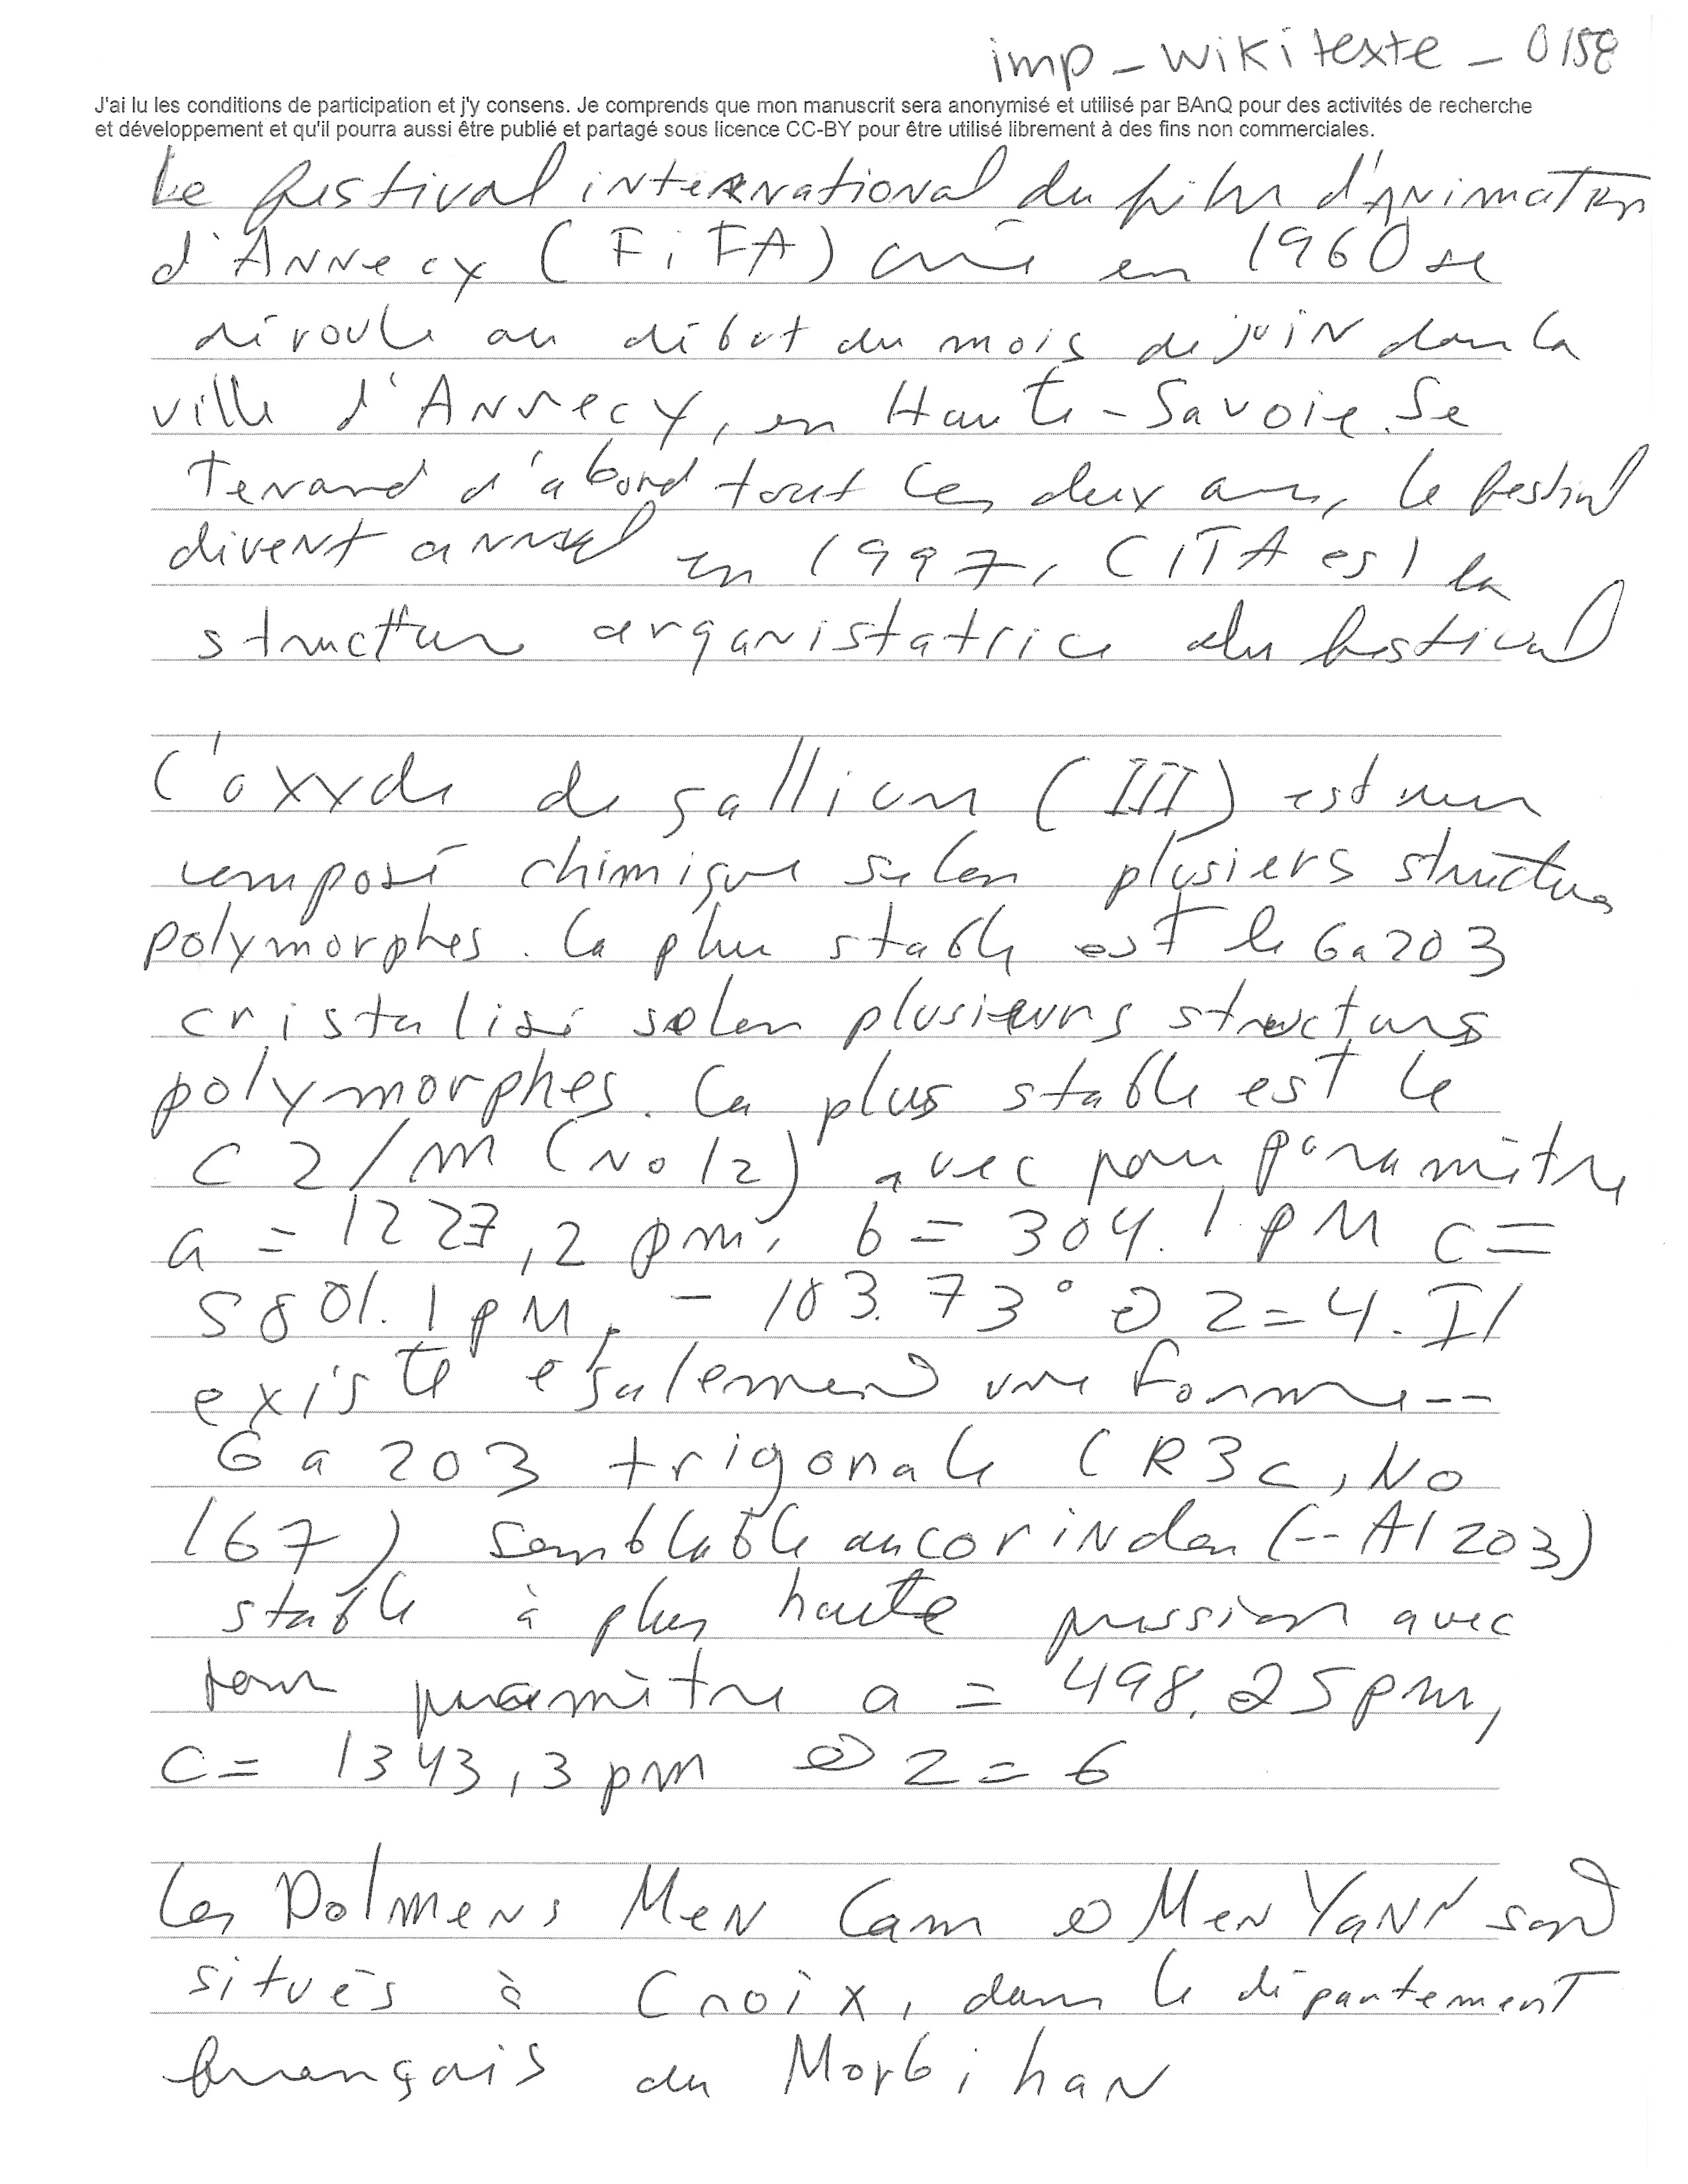 imp_wikitexte_0158
J'ai lu les conditions de participation et j'y consens. Je comprends que mon manuscrit sera anonymisé et utilisé par BAnQ pour des activités de recherche
et développement et qu'il pourra aussi être publié et partagé sous licence CC-BY pour être utilisé librement à des fins non commerciales.
Le festival international du film d'Animation
d'Annecy (FiFA) créé en 1960 se
déroule au début du mois de juin dans la
ville d'Annecy, en Haute-Savoie. Se
Tenand d'abord tout les deux ans, le festival
divent annuel en 1997, CITA est la
structure arganistatrice du festival
L'oxyde de gallium (III) est un
composé chimique selon plusiers structures
polymorphes. La plus stable est le Ga2O3
cristalisé selon plusieurs structures
polymorphes. La plus stable est le
C 2/m (No 12) avec pour paramètre
a = 1227,2 pm, b = 304.1 pM c=
5801.1 pM, - 103.73° et Z=4. Il
existe également une forme --
Ga2O3 trigonale (R3c, No
167) semblable au corindon (-- Al2O3)
stable à plus haute pression avec
pour paramètre a = 498.25pm,
c= 1343,3 pm et Z = 6
Les Dolmens Men Lam et Men Yann sont
situés à Croix, dans le département
français du Morbihan